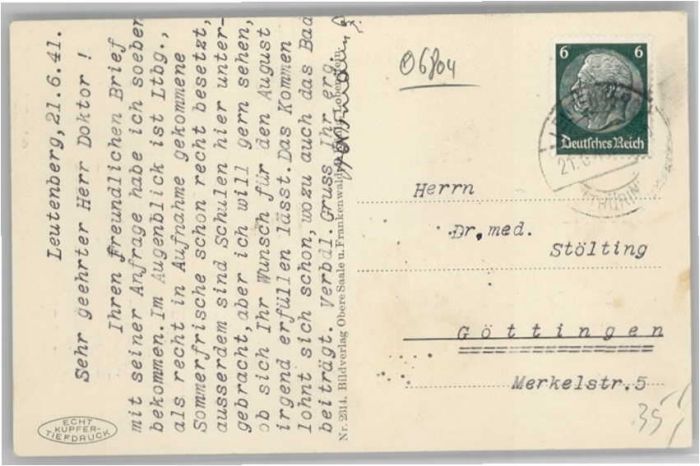 Leutenberg,21.6.41.
Sehr geehrter Herr Doktor !
Ihren freundlichen Brief
mit seiner Anfrage habe ich soeben
bekommen.Im Augenblick ist Ltbg.,
als recht in Aufnahme gekommene
Sommerfrische schon recht besetzt,
ausserdem sind Schulen hier unter-
gebracht,aber ich will gern sehen,
ob sich Ihr Wunsch für den August
irgend erfüllen lässt.Das Kommen
lohnt sich schon,wozu auch das Bad
beiträgt. Verbdl.Gruss Ihr erg.
Nr. 2314. Bildverlag Obere Saale u. Frankenwald
ECHT
KUPFER-
TIEFDRUCK
06804
6 6
Deutsches Reich
Herrn
Dr,med.
Stölting
Göttingen
Merkelstr.5
35/